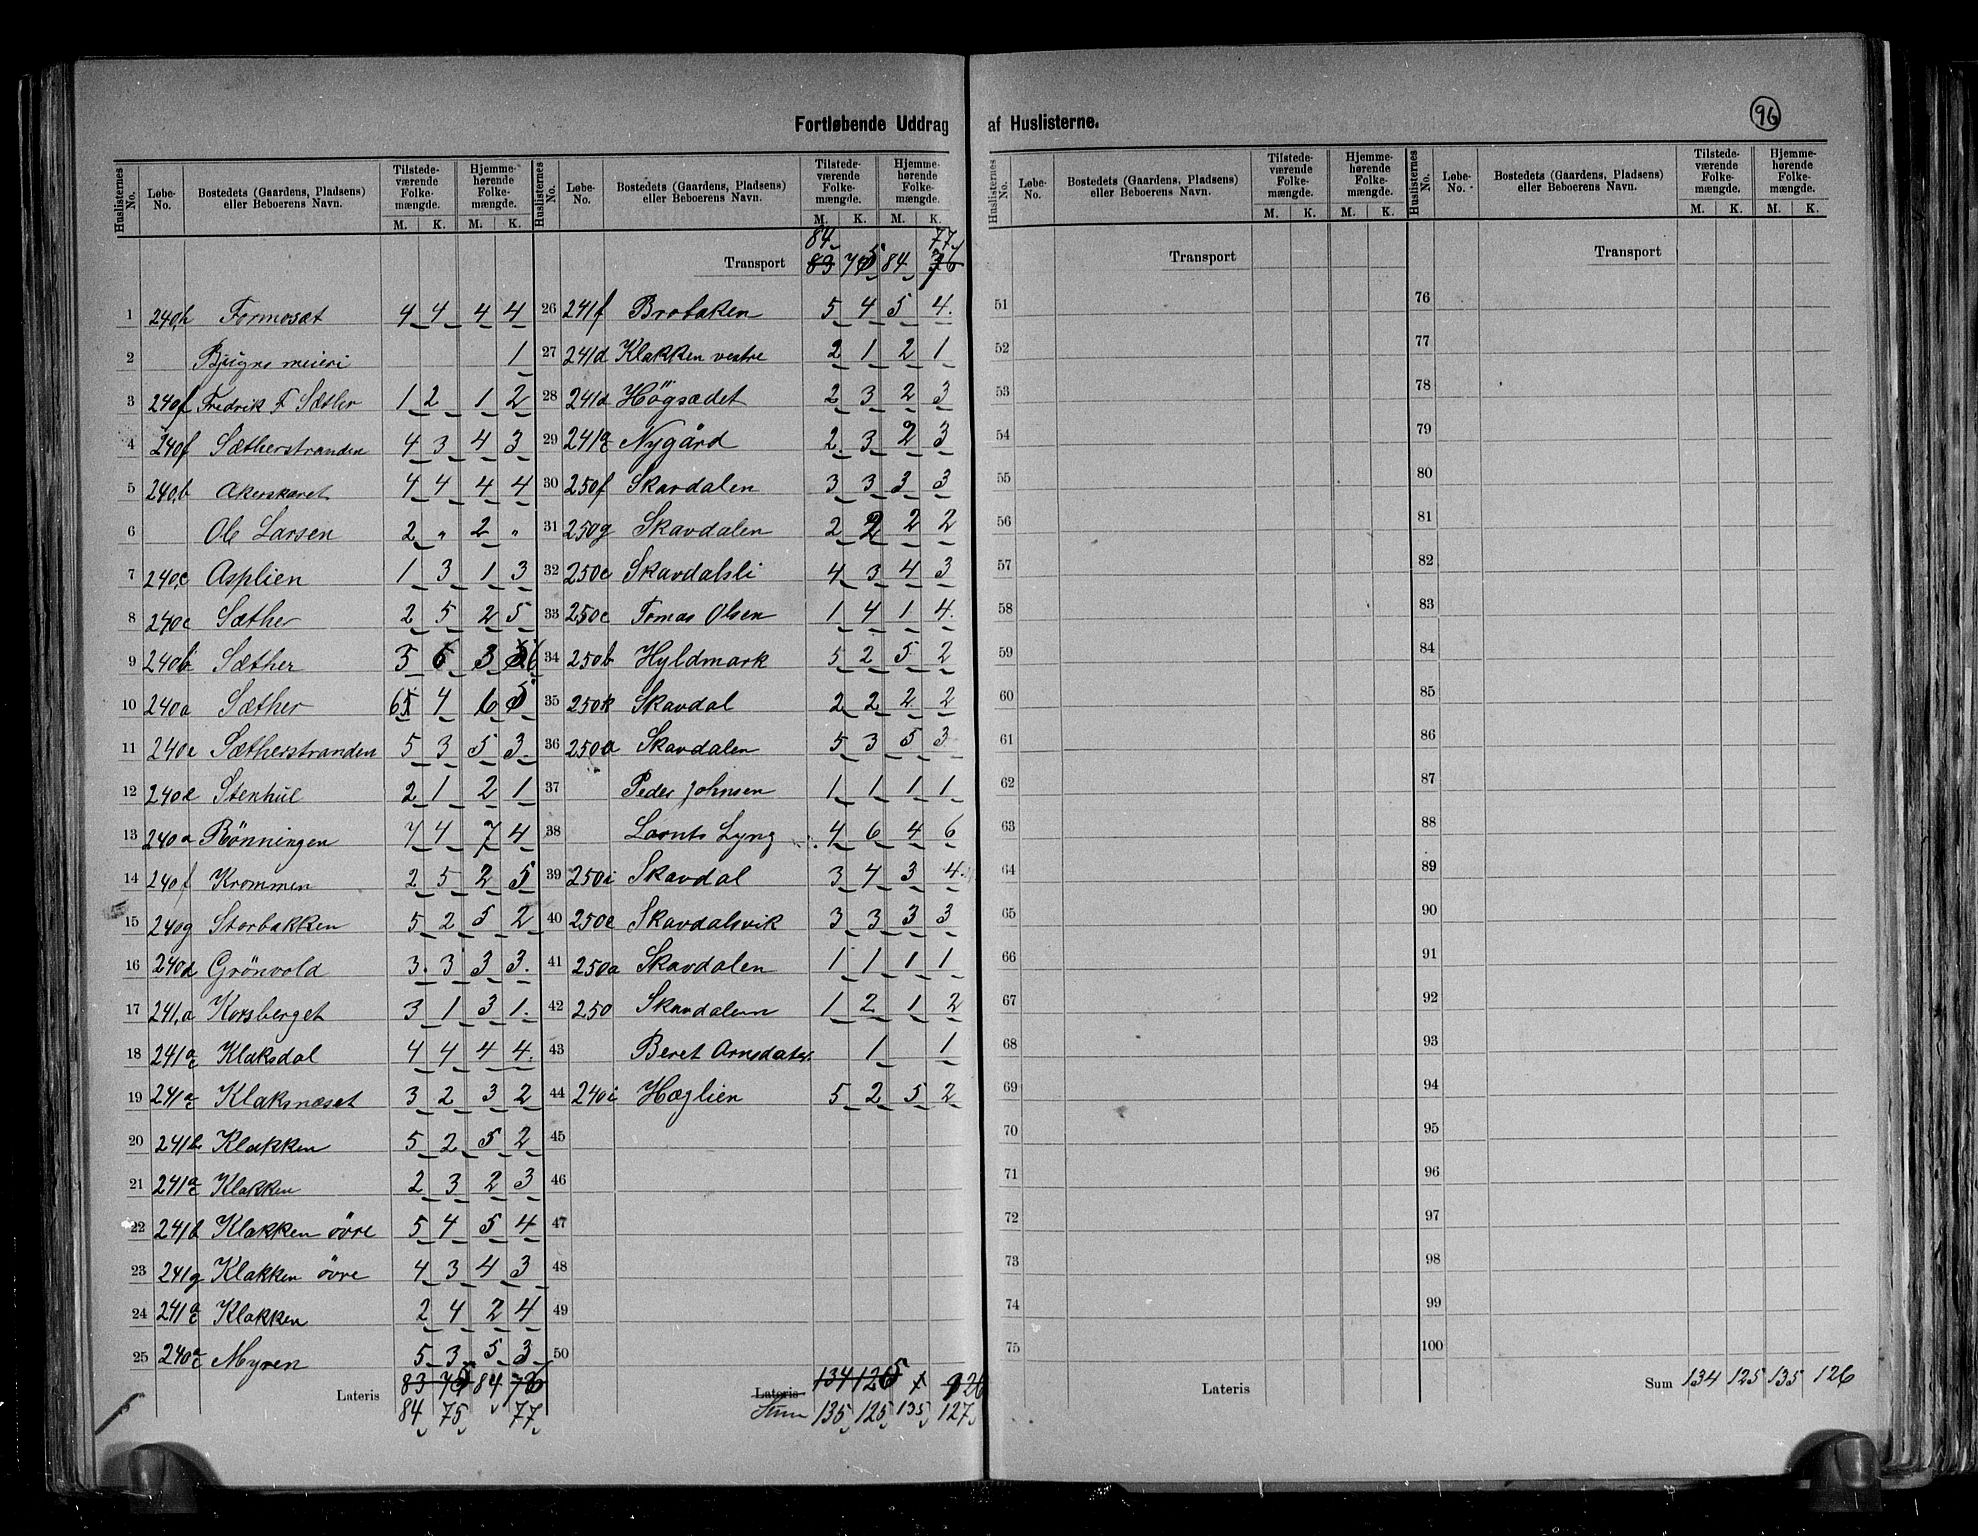 Fortløbende Uddrag af Huslisterne.
96
Huslisternes No. Løbe-No. Bostedets (Gaardens, Pladsens) eller Beboerens Navn. Tilstedeværende Folkemængde. M. K. Hjemmehørende Folkemængde. M. K.
1 240h Formosæt 4 4 4 4
2 Bjugns meieri 1
3 240f Fredrik F Sæther 1 2 1 2
4 240f Sætherstranden 4 3 4 3
5 240b Akerskaret 4 4 4 4
6 Ole Larsen 2 " 2 "
7 240c Asplien 1 3 1 3
8 240c Sæther 2 5 2 5
9 240b Sæther 3 6 3 6
10 240a Sæther 6 4 6 5
11 240e Sætherstranden 5 3 5 3
12 240e Stenhul 2 1 2 1
13 240a Rönningen 7 4 7 4
14 240f Krommen 2 5 2 5
15 240g Storbakken 5 2 5 2
16 240d Grönvold 3 3 3 3
17 241a Korsberget 3 1 3 1
18 241a/c Klaksdal 4 4 4 4
19 241a/c Klaksnæset 3 2 3 2
20 241b Klakken 5 2 5 2
21 241a/c Klakken 2 3 2 3
22 241b Klakken övre 5 4 5 4
23 241g Klakken övre 4 3 4 3
24 241a/c Klakken 2 4 2 4
25 240a/c Myren 5 3 5 3
Lateris 83 75 84 76
84 75 77
Huslisternes No. Løbe-No. Bostedets (Gaardens, Pladsens) eller Beboerens Navn. Tilstedeværende Folkemængde. M. K. Hjemmehørende Folkemængde. M. K.
84 77
Transport 83 75 84 76
26 241f Brobakken 5 4 5 4
27 241d Klakken vestre 2 1 2 1
28 241d Högsædet 2 3 2 3
29 241a/c Nygård 2 3 2 3
30 250f Skavdalen 3 3 3 3
31 250g Skavdalen 2 2 2 2
32 250c Skavdalsli 4 3 4 3
33 250c Tomas Olsen 1 4 1 4
34 250b Hyldmark 5 2 5 2
35 250k Skavdal 2 2 2 2
36 250a Skavdalen 5 3 5 3
37 Peder Johnsen 1 1 1 1
38 Lornts Lyng 4 6 4 6
39 250i Skavdal 3 4 3 4
40 250e Skavdalsvik 3 3 3 3
41 250a Skavdalen 1 1 1 1
42 250 Skavdalem 1 2 1 2
43 Beret Arnsdater 1 1
44 240i Hæglien 5 2 5 2
45
46
47
48
49
50
Lateris 134 125 126
Sum 135 125 135 127
Huslisternes No. Løbe-No. Bostedets (Gaardens, Pladsens) eller Beboerens Navn. Tilstedeværende Folkemængde. M. K. Hjemmehørende Folkemængde. M. K.
Transport
51
52
53
54
55
56
57
58
59
60
61
62
63
64
65
66
67
68
69
70
71
72
73
74
75
Lateris
Huslisternes No. Løbe-No. Bostedets (Gaardens, Pladsens) eller Beboerens Navn. Tilstedeværende Folkemængde. M. K. Hjemmehørende Folkemængde. M. K.
Transport
76
77
78
79
80
81
82
83
84
85
86
87
88
89
90
91
92
93
94
95
96
97
98
99
100
Sum 134 125 135 126